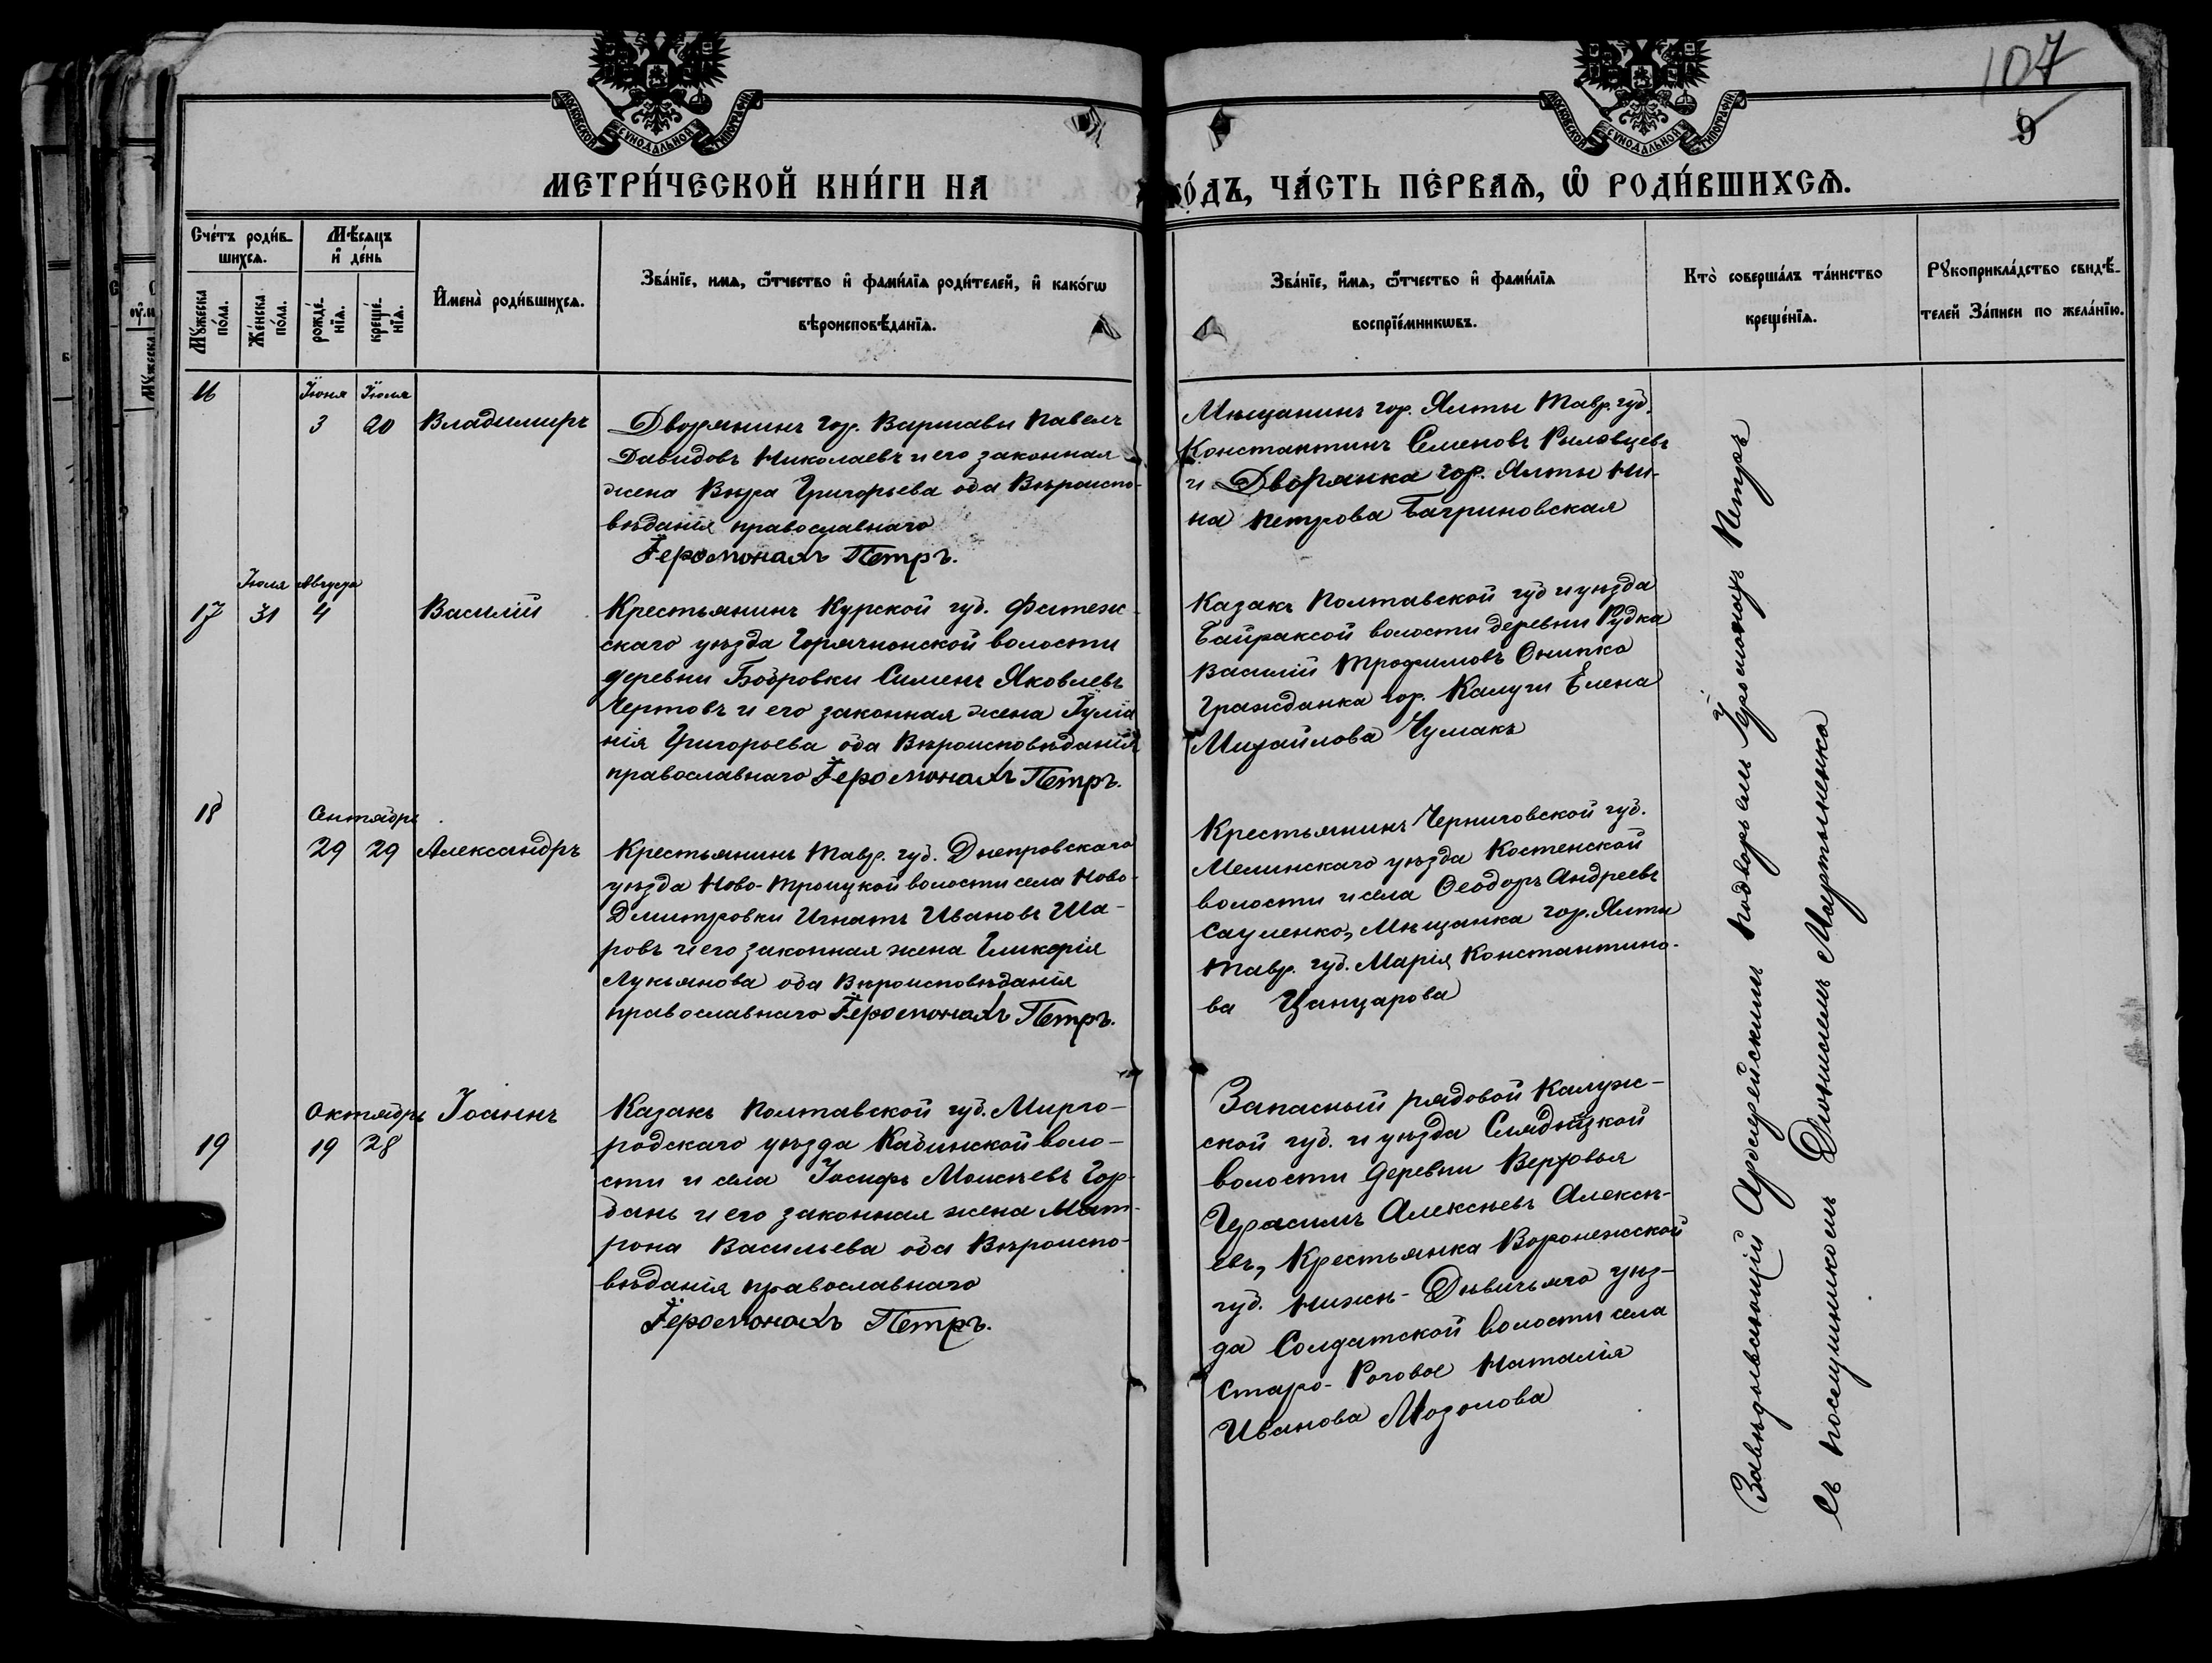 107
9
МОСКОВСКОЙ СѴНОДАЛЬНОЙ ТИПОГРАФІИ
МОСКОВСКОЙ СѴНОДАЛЬНОЙ ТИПОГРАФІИ
МЕТРИ́ЧЕСКОЙ КНИ́ГИ НА
го́дъ, ча́сть пе́рвая, ѡ роди́вшихся.
Сче́тъ роди́в-
шихся.
Мꙋ́жеска по́ла.
Же́нска по́ла.
Мѣ́сяцъ и҆ де́нь
рожде́нїѧ.
креще́нїѧ.
И҆мена̀ роди́вшихсѧ.
Зва́нїе, и҆мѧ, ѻ҆́тчество и҆ фами́лїѧ роди́телей, и҆ како́гѡ
вѣроисповѣ́данїѧ.
Зва́нїе, и҆́мѧ, ѻ҆́тчество и҆ фами́лїѧ
воспрїе́мникѡвъ.
Кто̀ соверша́лъ та́инство
креще́нїѧ.
Рꙋкоприкла́дство свидѣ́-
телей За́писи по жела́нїю.
16
Іюня Іюля
3 20 Владимиръ
Дворянинъ гор. Варшавы Павелъ
Давидовъ Николаевъ и его законная
жена Вѣра Григорьева оба Вѣроиспо-
вѣданія православнаго
Іеромонахъ Петръ.
Мѣщанинъ гор. Ялты Тавр. губ.
Константинъ Семеновъ Рыловцевъ
и Дворянка гор. Ялты Ни-
на Петрова Багриновская
Іюля Августа
17 31 4 Василій
Крестьянинъ Курской губ. Фатеж-
скаго уѣзда волости
деревни Бобровки Сименъ Яковлевъ
Чертовъ и его законная жена Іулiа
нія Григорьева оба Вѣроисповѣданія
православнаго Іеромонахъ Петръ.
Казакъ Полтавской губ и уѣзда
Байраксой волости деревни Рудка
Василій Трофимовъ Онипко
Гражданка гор. Калуги Елена
Михайлова Чумакъ
18
Сентябрь
29 29 Александръ
Крестьянинъ Тавр. губ. Днепровскаго
уѣзда Ново-Троицкой волости села Ново-
Дмитровки Игнатъ Ивановъ Ша-
ровъ и его законная жена Гликерія
Лукьянова оба Вѣроисповѣданія
православнаго Іеромонахъ Петръ.
Крестьянинъ Черниговской губ.
уѣзда Костенской
волости и села Ѳеодоръ Андреевъ
Сауленко, Мѣщанка гор. Ялты
Тавр. губ. Марія Константино-
ва Цанцарова
Октябрь Іоаннъ
19 19 28
Казакъ Полтавской губ. Мирго-
родскаго уѣзда воло-
сти и села Іосифъ Моисѣевъ Гор-
бань и его законная жена Мат-
рона Васильева оба Вѣроиспо-
вѣданія православнаго
Іеромонахъ Петръ.
Запасный рядовой Калуж-
ской губ. и уѣзда
волости деревни Верховья
Герасимъ Алексѣевъ Алексѣ-
евъ, Крестьянка Воронежской
губ. Нижн-Дѣвичьяго уѣз-
да Солдатской волости села
Старо-Роговое Наталія
Иванова Мозолова
Завѣдывающій Архіерейскимъ подворьемъ Іеромонахъ Петръ
съ послушникомъ Діонисіемъ Мартыненко